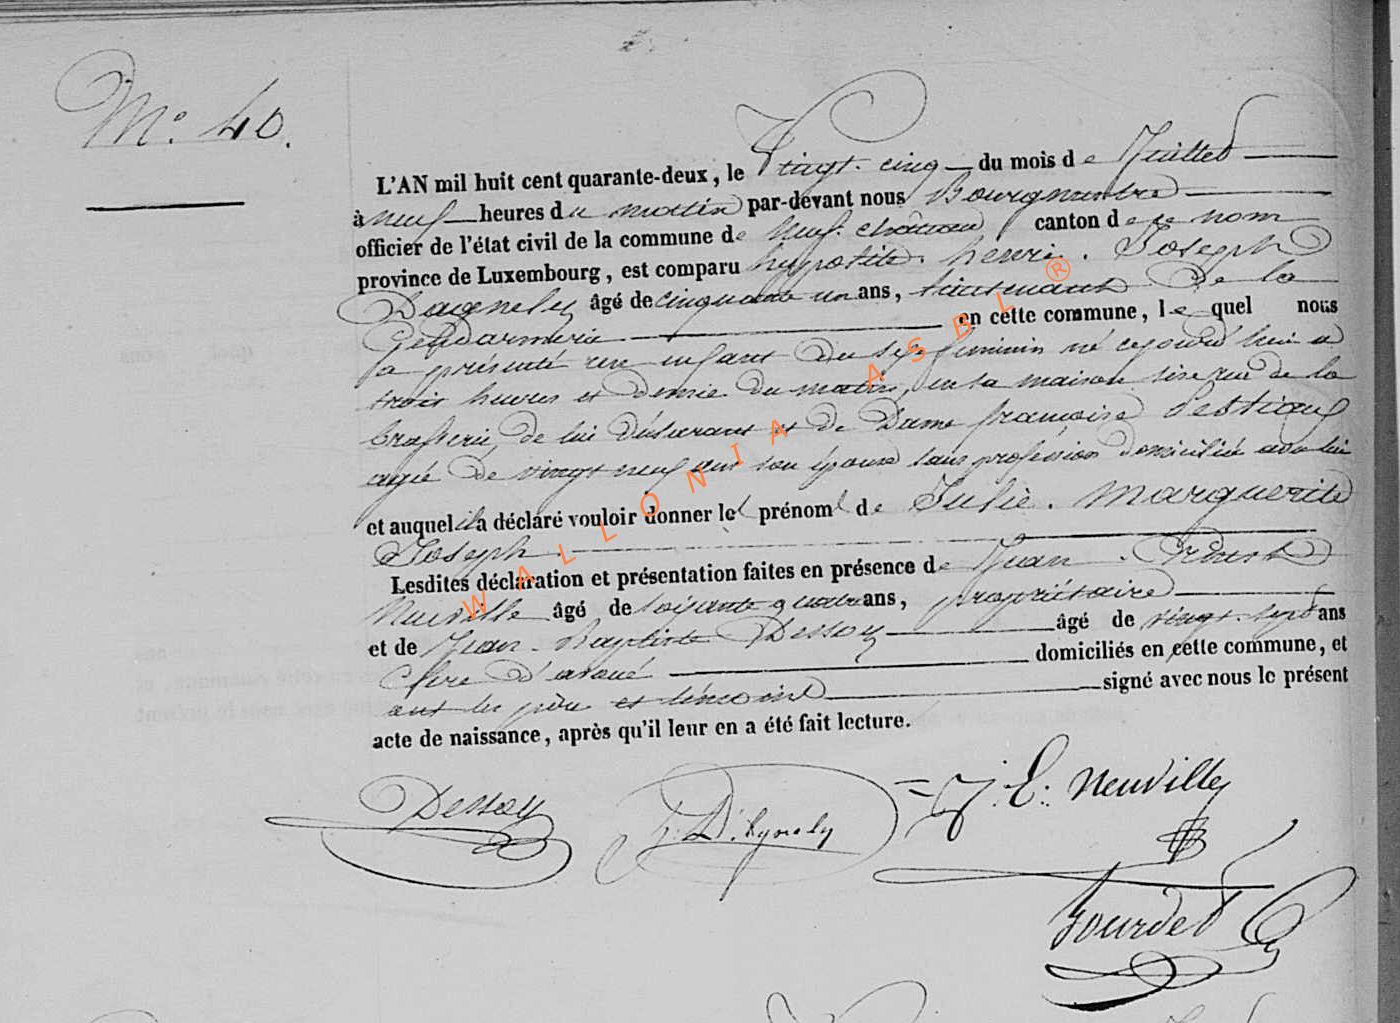 N.° 40.
L'AN mil huit cent quarante-deux, le Vingt-cinq du mois de Juillet
à neuf heures du matin par-devant nous Bourgmestre
officier de l'état civil de la commune de Neuf-château canton de ce nom
province de Luxembourg, est comparu hyppolite. henri. Joseph
âgé de cinquante un ans, lieutenant de la
Gendarmerie en cette commune, le quel nous
a présenté un enfant du sexe féminin né cejourd'hui à
trois heures et demie du matin, en sa maison sise rue de la
brasserie, de lui déclarant et de Dame françoise
agée de vingt neuf ans son épouse sans profession domiciliée avec lui
et auquel il a déclaré vouloir donner le prénom de Julie. Marguerite
Joseph.
Lesdites déclaration et présentation faites en présence de Jean.
Neuville âgé de soixante quatre ans, propriétaire
et de Jean-Baptiste Dessoy âgé de vingt-sept ans
Clerc d'avoué domiciliés en cette commune, et
ont les père et témoins signé avec nous le présent
acte de naissance, après qu'il leur en a été fait lecture.
Dessoy
J. E. Neuville
Gourdet
WALLONIA ASBL ®